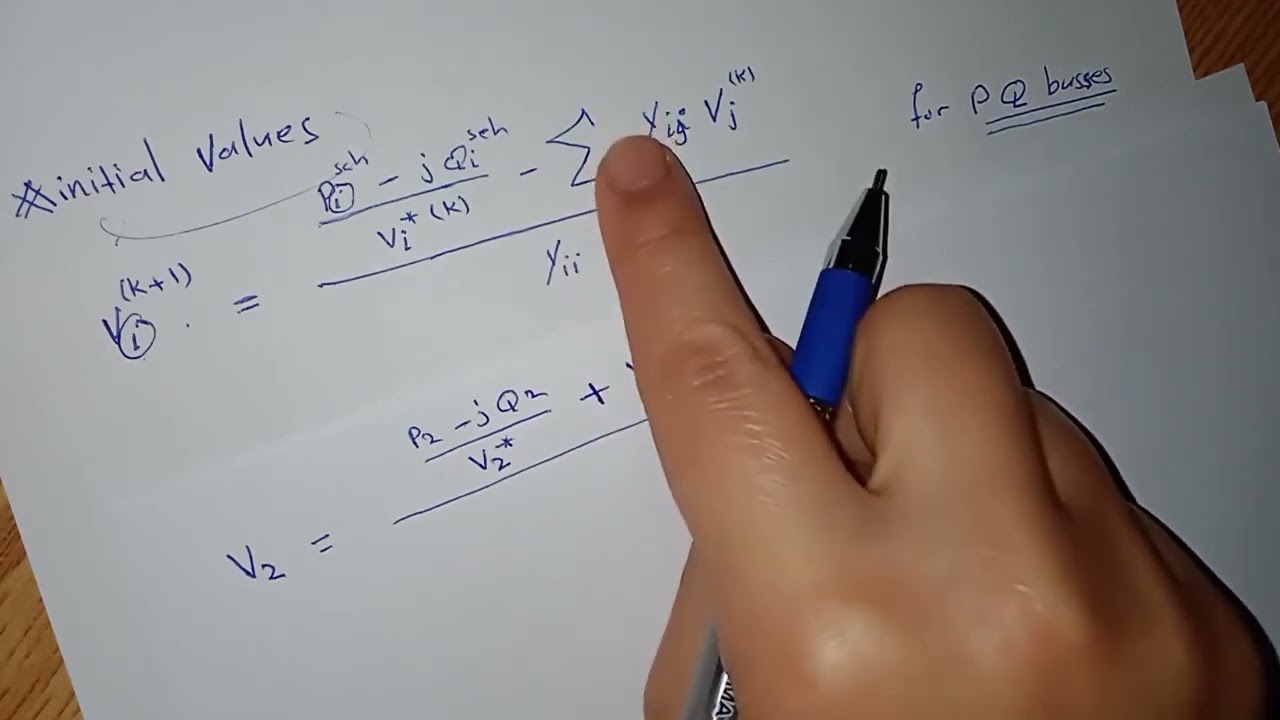 initial values
for PQ busses
Vi^(k+1) = (Pi^sch - jQi^sch / Vi*^(k) - Σ Yij Vj^(k)) / Yii
V2 = P2 - jQ2 / V2* +